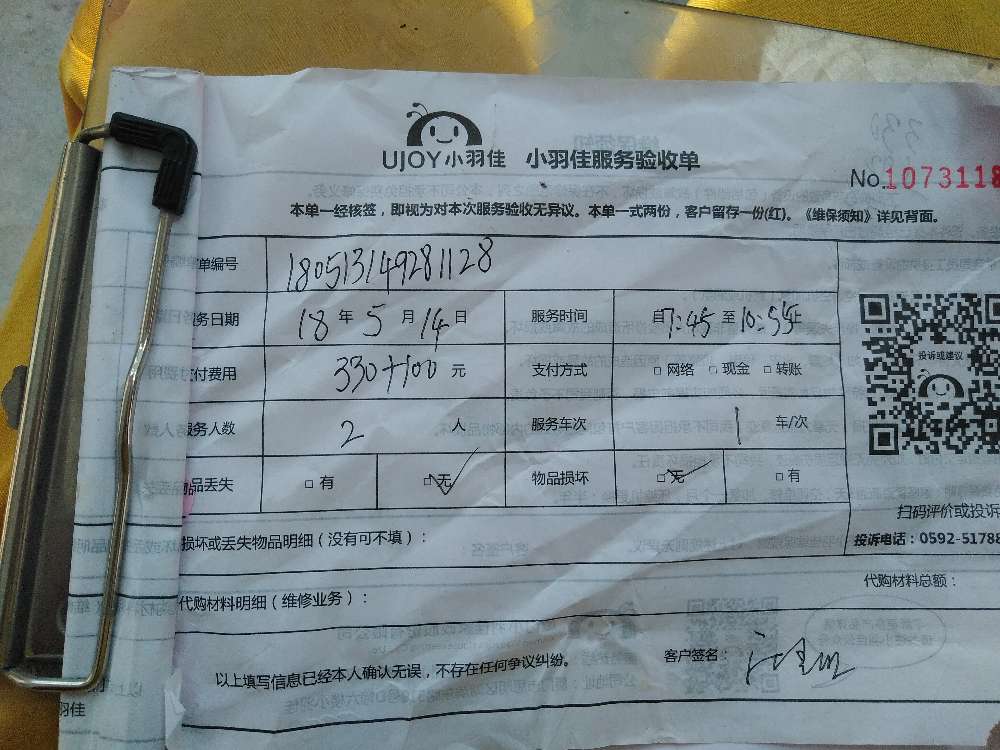 UJOY小羽佳 小羽佳服务验收单
No.1073118
本单一经核签，即视为对本次服务验收无异议。本单一式两份，客户留存一份(红)。《维保须知》详见背面。
单编号 180513149281128
务日期 18 年 5 月 14 日 服务时间 自 7:45 至 10:55 止
付费用 330+100 元 支付方式 □ 网络 □ 现金 □ 转账
务人数 2 人 服务车次 1 车/次
品丢失 □ 有 □ 无 物品损坏 □ 无 □ 有
投诉或建议
扫码评价或投诉
投诉电话：0592-51788
损坏或丢失物品明细（没有可不填）：
代购材料总额：
代购材料明细（维修业务）：
以上填写信息已经本人确认无误，不存在任何争议纠纷。 客户签名：
羽佳